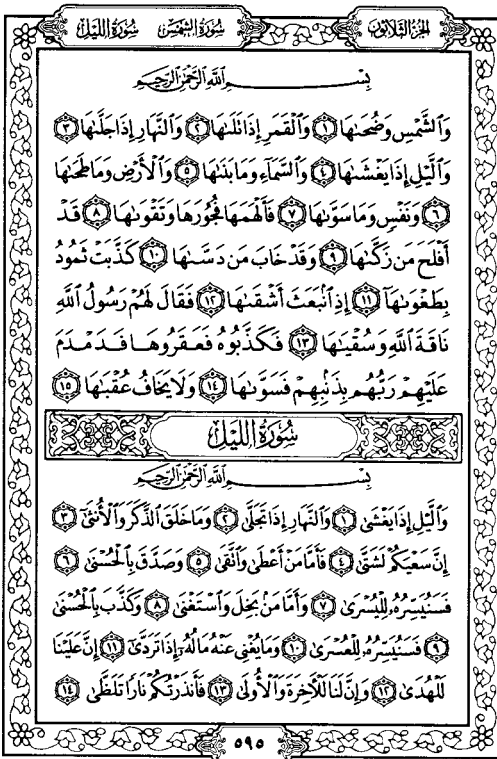 الجزء الثلاثون
سورة الشمس سورة الليل
بِسْمِ ٱللَّهِ ٱلرَّحْمَٰنِ ٱلرَّحِيمِ
وَٱلشَّمْسِ وَضُحَىٰهَا ١ وَٱلْقَمَرِ إِذَا تَلَىٰهَا ٢ وَٱلنَّهَارِ إِذَا جَلَّىٰهَا ٣
وَٱلَّيْلِ إِذَا يَغْشَىٰهَا ٤ وَٱلسَّمَآءِ وَمَا بَنَىٰهَا ٥ وَٱلْأَرْضِ وَمَا طَحَىٰهَا
٦ وَنَفْسٍ وَمَا سَوَّىٰهَا ٧ فَأَلْهَمَهَا فُجُورَهَا وَتَقْوَىٰهَا ٨ قَدْ
أَفْلَحَ مَن زَكَّىٰهَا ٩ وَقَدْ خَابَ مَن دَسَّىٰهَا ١٠ كَذَّبَتْ ثَمُودُ
بِطَغْوَىٰهَآ ١١ إِذِ ٱنۢبَعَثَ أَشْقَىٰهَا ١٢ فَقَالَ لَهُمْ رَسُولُ ٱللَّهِ
نَاقَةَ ٱللَّهِ وَسُقْيَٰهَا ١٣ فَكَذَّبُوهُ فَعَقَرُوهَا فَدَمْدَمَ
عَلَيْهِمْ رَبُّهُم بِذَنۢبِهِمْ فَسَوَّىٰهَا ١٤ وَلَا يَخَافُ عُقْبَٰهَا ١٥
سُورَةُ اللَّيْلِ
بِسْمِ ٱللَّهِ ٱلرَّحْمَٰنِ ٱلرَّحِيمِ
وَٱلَّيْلِ إِذَا يَغْشَىٰ ١ وَٱلنَّهَارِ إِذَا تَجَلَّىٰ ٢ وَمَا خَلَقَ ٱلذَّكَرَ وَٱلْأُنثَىٰٓ ٣
إِنَّ سَعْيَكُمْ لَشَتَّىٰ ٤ فَأَمَّا مَنْ أَعْطَىٰ وَٱتَّقَىٰ ٥ وَصَدَّقَ بِٱلْحُسْنَىٰ ٦
فَسَنُيَسِّرُهُۥ لِلْيُسْرَىٰ ٧ وَأَمَّا مَنۢ بَخِلَ وَٱسْتَغْنَىٰ ٨ وَكَذَّبَ بِٱلْحُسْنَىٰ
٩ فَسَنُيَسِّرُهُۥ لِلْعُسْرَىٰ ١٠ وَمَا يُغْنِى عَنْهُ مَالُهُۥٓ إِذَا تَرَدَّىٰٓ ١١ إِنَّ عَلَيْنَا
لَلْهُدَىٰ ١٢ وَإِنَّ لَنَا لَلْءَاخِرَةَ وَٱلْأُولَىٰ ١٣ فَأَنذَرْتُكُمْ نَارًا تَلَظَّىٰ ١٤
٥٩٥